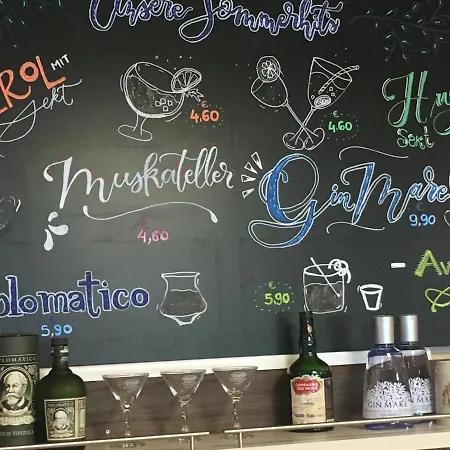 Unsere Sommerhits
EROL MIT
Sekt
€ 4.60
€ 4.60
Sekt
Muskateller
€ 4,60
Gin Mare
9,90
plomatico
€ 5,90
€ 5.90
Av
DIPLOMÁTICO
COMPAGNIE
DES INDES
GIN MARE
GIN MARE